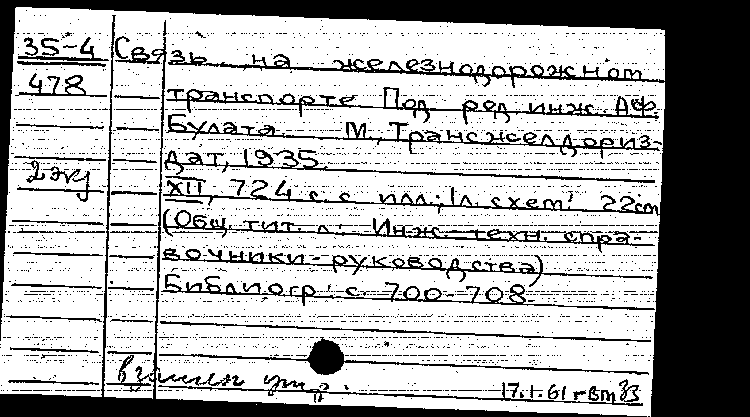 35-4 Связь на железнодорожном
478 транспорте Под ред инж. А.Ф.
Булата М., Трансжелдориз-
дат, 1935
2 экз
XII, 724 с. с илл.; 1 л. схем; 22cm
(Общ. тит. л.: Инж.-техн. спра-
вочники-руководства)
Библиогр: с. 700-708
взамен утр.
17.1.61 г Вт